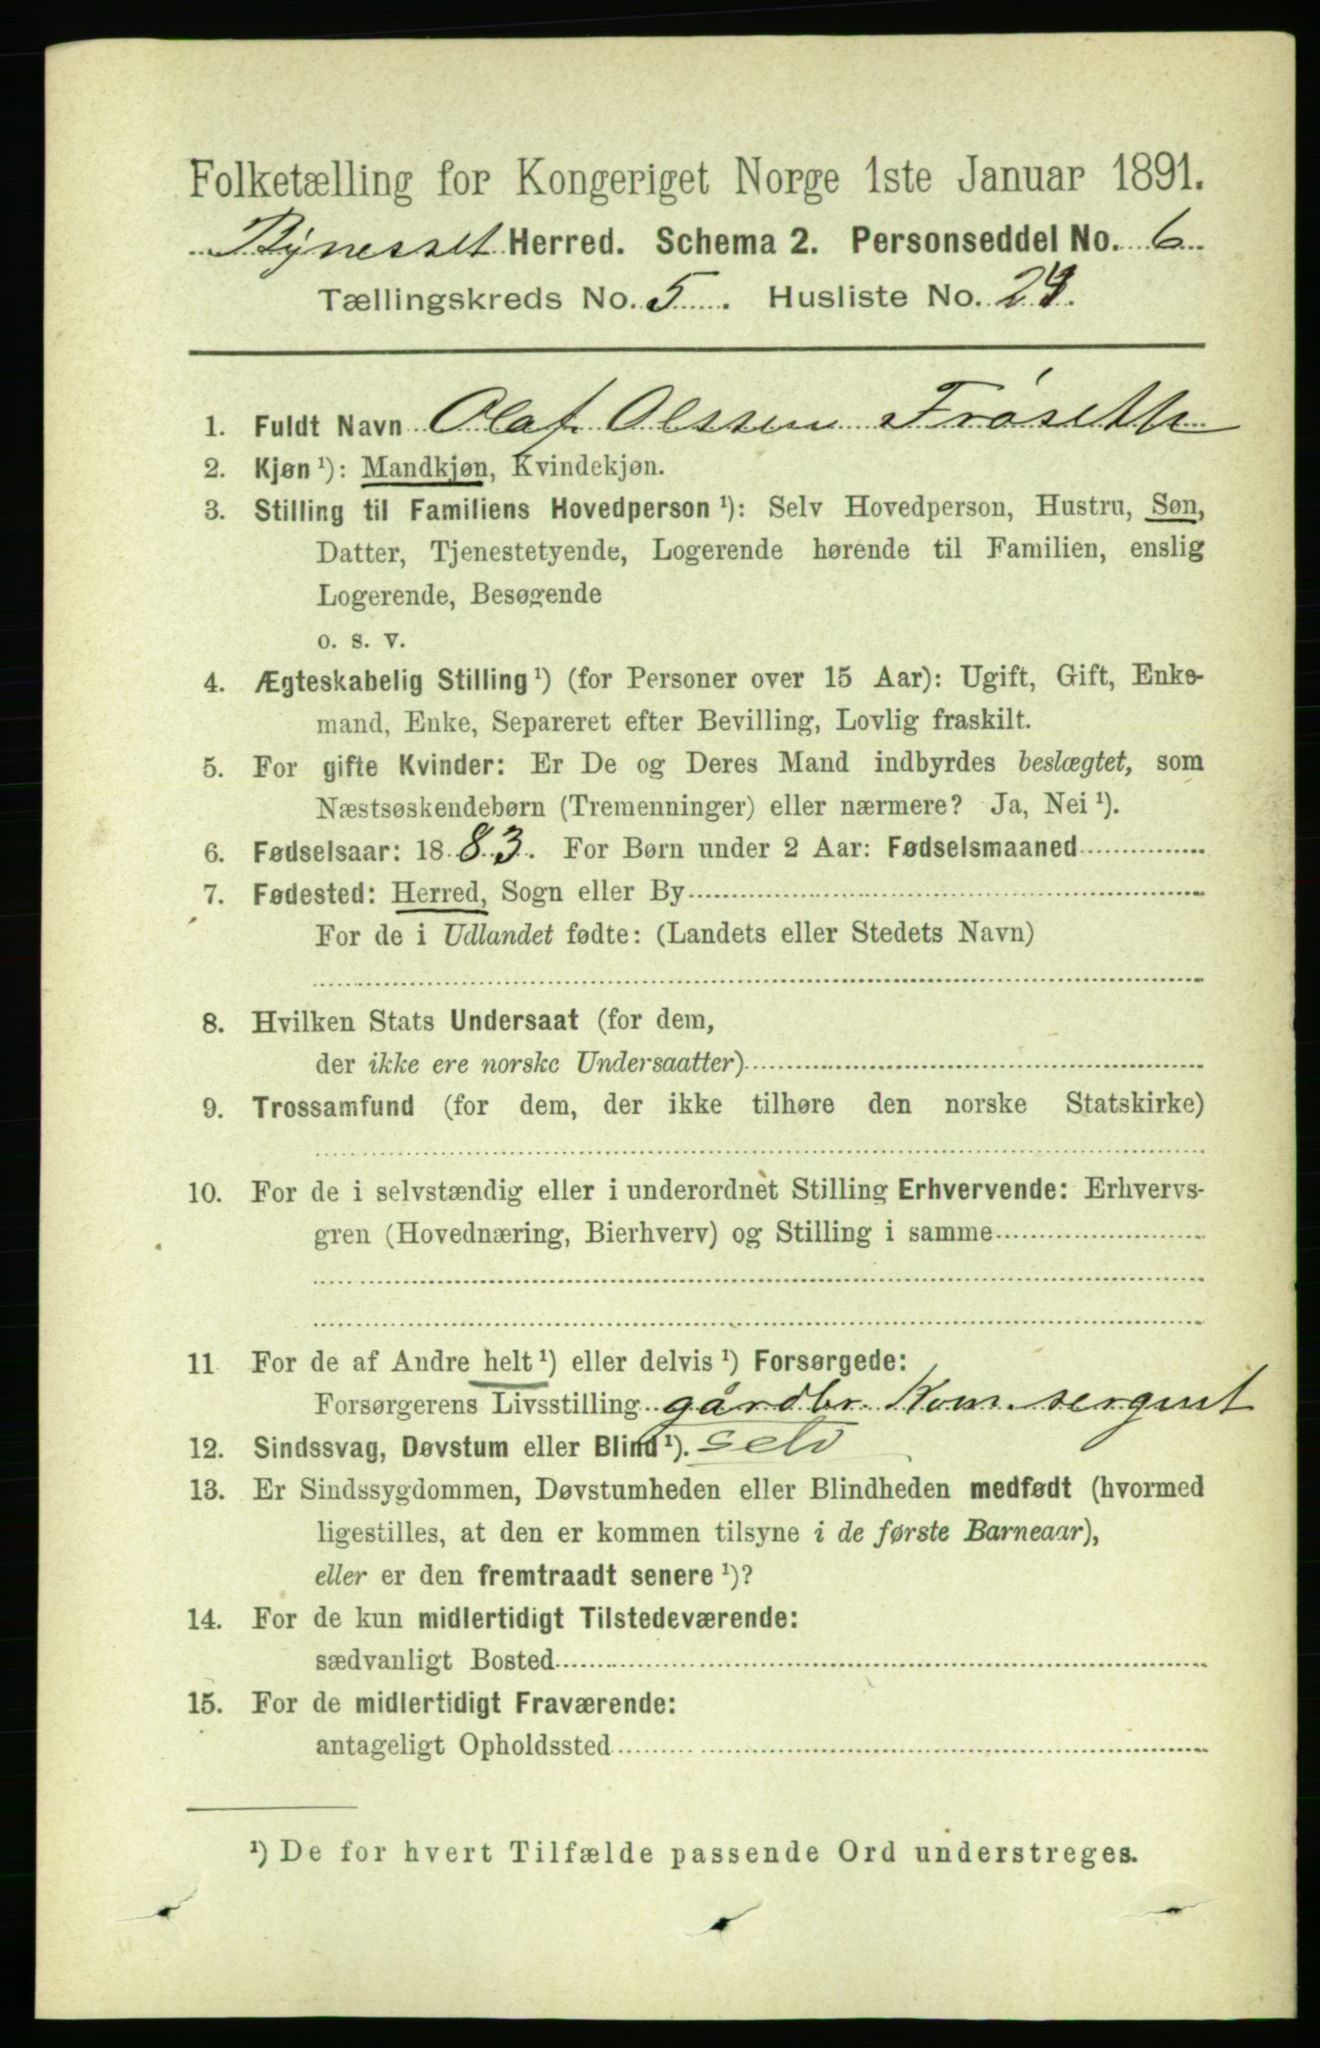 Folketælling for Kongeriget Norge 1ste Januar 1891.
Bynesset Herred. Schema 2. Personseddel No. 6
Tællingskreds No. 5. Husliste No.
1. Fuldt Navn Olaf Olssen Frøseth
2. Kjøn ¹): Mandkjøn, Kvindekjøn.
3. Stilling til Familiens Hovedperson ¹): Selv Hovedperson, Hustru, Søn,
Datter, Tjenestetyende, Logerende hørende til Familien, enslig
Logerende, Besøgende
o. s. v.
4. Ægteskabelig Stilling ¹) (for Personer over 15 Aar): Ugift, Gift, Enke-
mand, Enke, Separeret efter Bevilling, Lovlig fraskilt.
5. For gifte Kvinder: Er De og Deres Mand indbyrdes beslægtet, som
Næstsøskendebørn (Tremenninger) eller nærmere? Ja, Nei ¹).
6. Fødselsaar: 1883. For Børn under 2 Aar: Fødselsmaaned
7. Fødested: Herred, Sogn eller By
For de i Udlandet fødte: (Landets eller Stedets Navn)
8. Hvilken Stats Undersaat (for dem,
der ikke ere norske Undersaatter)
9. Trossamfund (for dem, der ikke tilhøre den norske Statskirke)
10. For de i selvstændig eller i underordnet Stilling Erhvervende: Erhvervs-
gren (Hovednæring, Bierhverv) og Stilling i samme
11 For de af Andre helt ¹) eller delvis ¹) Forsørgede:
Forsørgerens Livsstilling gårdbr. Kom. sergent
12. Sindssvag, Døvstum eller Blind ¹).
13. Er Sindssygdommen, Døvstumheden eller Blindheden medfødt (hvormed
ligestilles, at den er kommen tilsyne i de første Barneaar),
eller er den fremtraadt senere ¹)?
14. For de kun midlertidigt Tilstedeværende:
sædvanligt Bosted
15. For de midlertidigt Fraværende:
antageligt Opholdssted
¹) De for hvert Tilfælde passende Ord understreges.